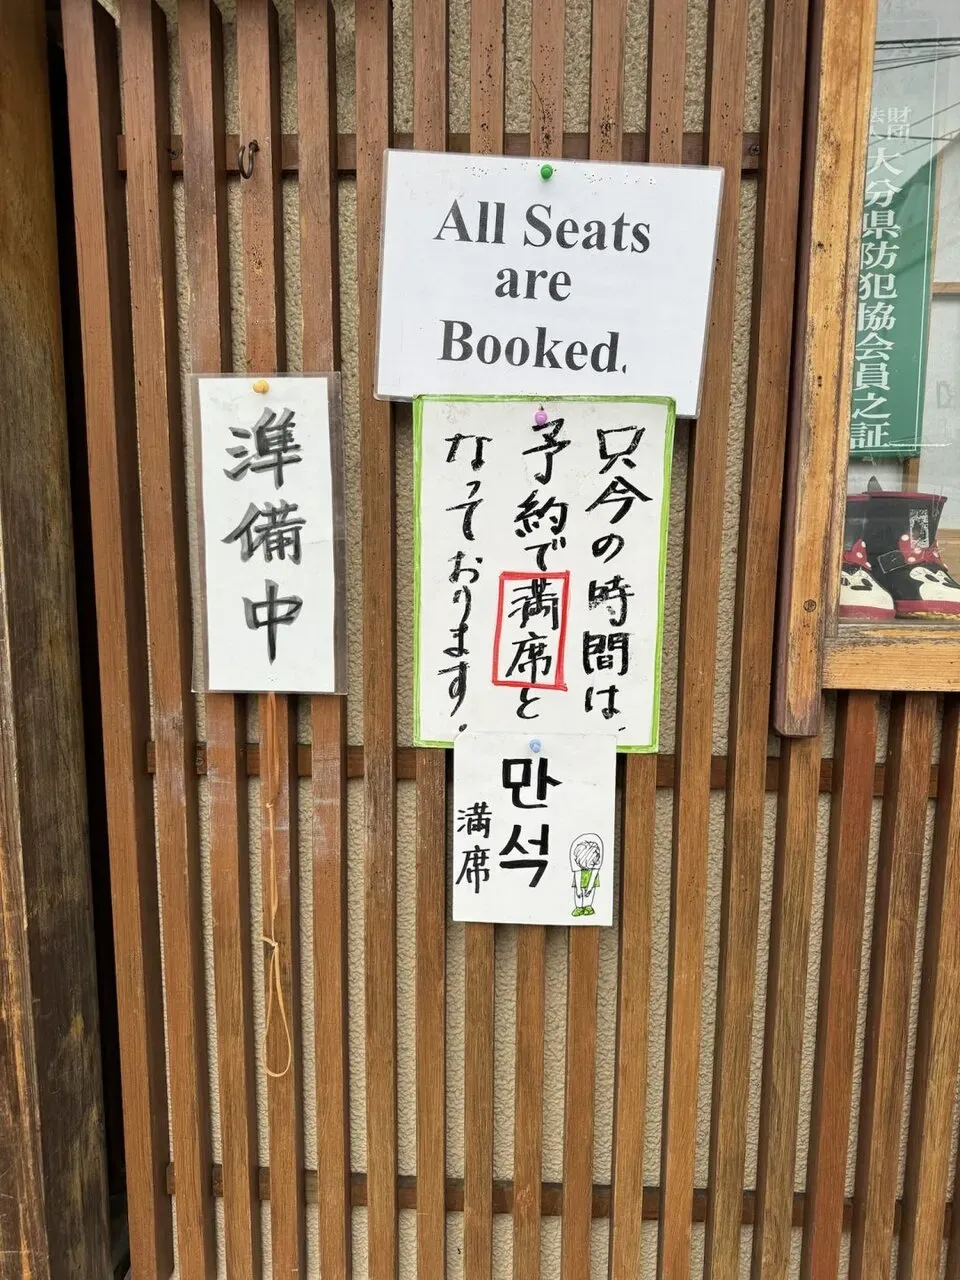 All Seats
are
Booked.
準備中
只今の時間は、
予約で満席と
なっております。
만석
満席
財団
法人
大分県防犯協会員之証